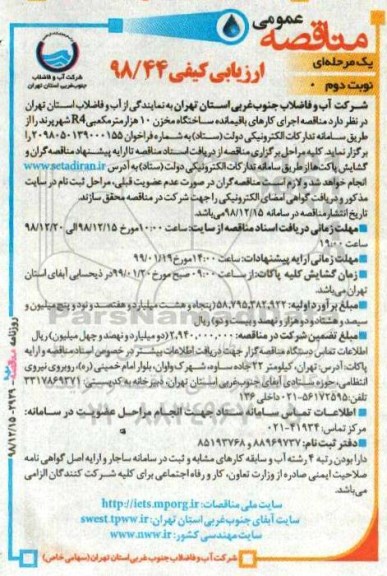 مناقصه عمومی
یک مرحله‌ای
نوبت دوم
ارزیابی کیفی ۹۸/۴۴
شرکت آب و فاضلاب
جنوب غربی استان تهران
شرکت آب و فاضلاب جنوب غربی استان تهران به نمایندگی از آب و فاضلاب استان تهران
در نظر دارد مناقصه اجرای کارهای باقیمانده ساختگاه مخزن ۱۰ هزار مترمکعبی R4 شهر پرند را از
طریق سامانه تدارکات الکترونیکی دولت (ستاد) به شماره فراخوان ۲۰۹۸۰۵۰۱۳۹۰۰۰۱۵۵
برگزار نماید. کلیه مراحل برگزاری مناقصه از دریافت اسناد مناقصه تا ارایه پیشنهاد مناقصه گران و
گشایش پاکت‌ها از طریق سامانه تدارکات الکترونیکی دولت (ستاد) به آدرس www.setadiran.ir
انجام خواهد شد و لازم است مناقصه گران در صورت عدم عضویت قبلی، مراحل ثبت نام در سایت
مذکور و دریافت گواهی امضای الکترونیکی را جهت شرکت در مناقصه محقق سازند.
تاریخ انتشار مناقصه در سامانه ۹۸/۱۲/۱۵ می‌باشد.
مهلت زمانی دریافت اسناد مناقصه از سایت: ساعت ۱۰:۰۰ مورخ ۹۸/۱۲/۱۵ الی ۹۸/۱۲/۲۰
ساعت ۱۹:۰۰
مهلت زمانی ارایه پیشنهادات: ساعت ۱۴:۰۰ مورخ ۹۹/۰۱/۱۹
زمان گشایش کلیه پاکات: از ساعت ۰۹:۰۰ صبح مورخ ۹۹/۰۱/۲۰ در ذیحسابی آبفای استان
تهران می‌باشد.
مبلغ برآورد اولیه: ۵۸,۷۹۵,۳۸۲,۹۲۲ (پنجاه و هشت میلیارد و هفتصد و نود و پنج میلیون و
سیصد و هشتاد و دو هزار و نهصد و بیست و دو) ریال
مبلغ تضمین شرکت در مناقصه: ۲,۹۴۰,۰۰۰,۰۰۰ (دو میلیارد و نهصد و چهل میلیون) ریال
اطلاعات تماس دستگاه مناقصه گزار جهت دریافت اطلاعات بیشتر در خصوص اسناد مناقصه و ارایه
پاکات: آدرس: تهران، کیلومتر ۲۲ جاده ساوه، شهرک واوان، بلوار امام خمینی (ره)، روبروی نیروی
انتظامی، حوزه ستادی آبفای جنوب غربی استان تهران، دبیرخانه به کدپستی: ۳۳۱۷۸۶۹۳۷۱
تلفن: ۵۶۱۷۲۵۹۵-۰۲۱ داخلی ۱۳۶
اطلاعات تماس سامانه ستاد جهت انجام مراحل عضویت در سامانه:
مرکز تماس: ۴۱۹۳۴-۰۲۱
دفتر ثبت نام: ۸۸۹۶۹۷۳۷ و ۸۵۱۹۳۷۶۸
دارا بودن رتبه ۴ رشته آب و سابقه کارهای مشابه و ثبت در سامانه ساجار و ارایه اصل گواهی نامه
صلاحیت ایمنی صادره از وزارت تعاون، کار و رفاه اجتماعی برای کلیه شرکت کنندگان الزامی
می‌باشد.
سایت ملی مناقصات: http://iets.mporg.ir
سایت آبفای جنوب غربی استان تهران: swest.tpww.ir
سایت مهندسی کشور: www.nww.ir
شرکت آب و فاضلاب جنوب غربی استان تهران (سهامی خاص)
روزنامه مناقصه ۲۹۳۹- ۹۸/۱۲/۱۵